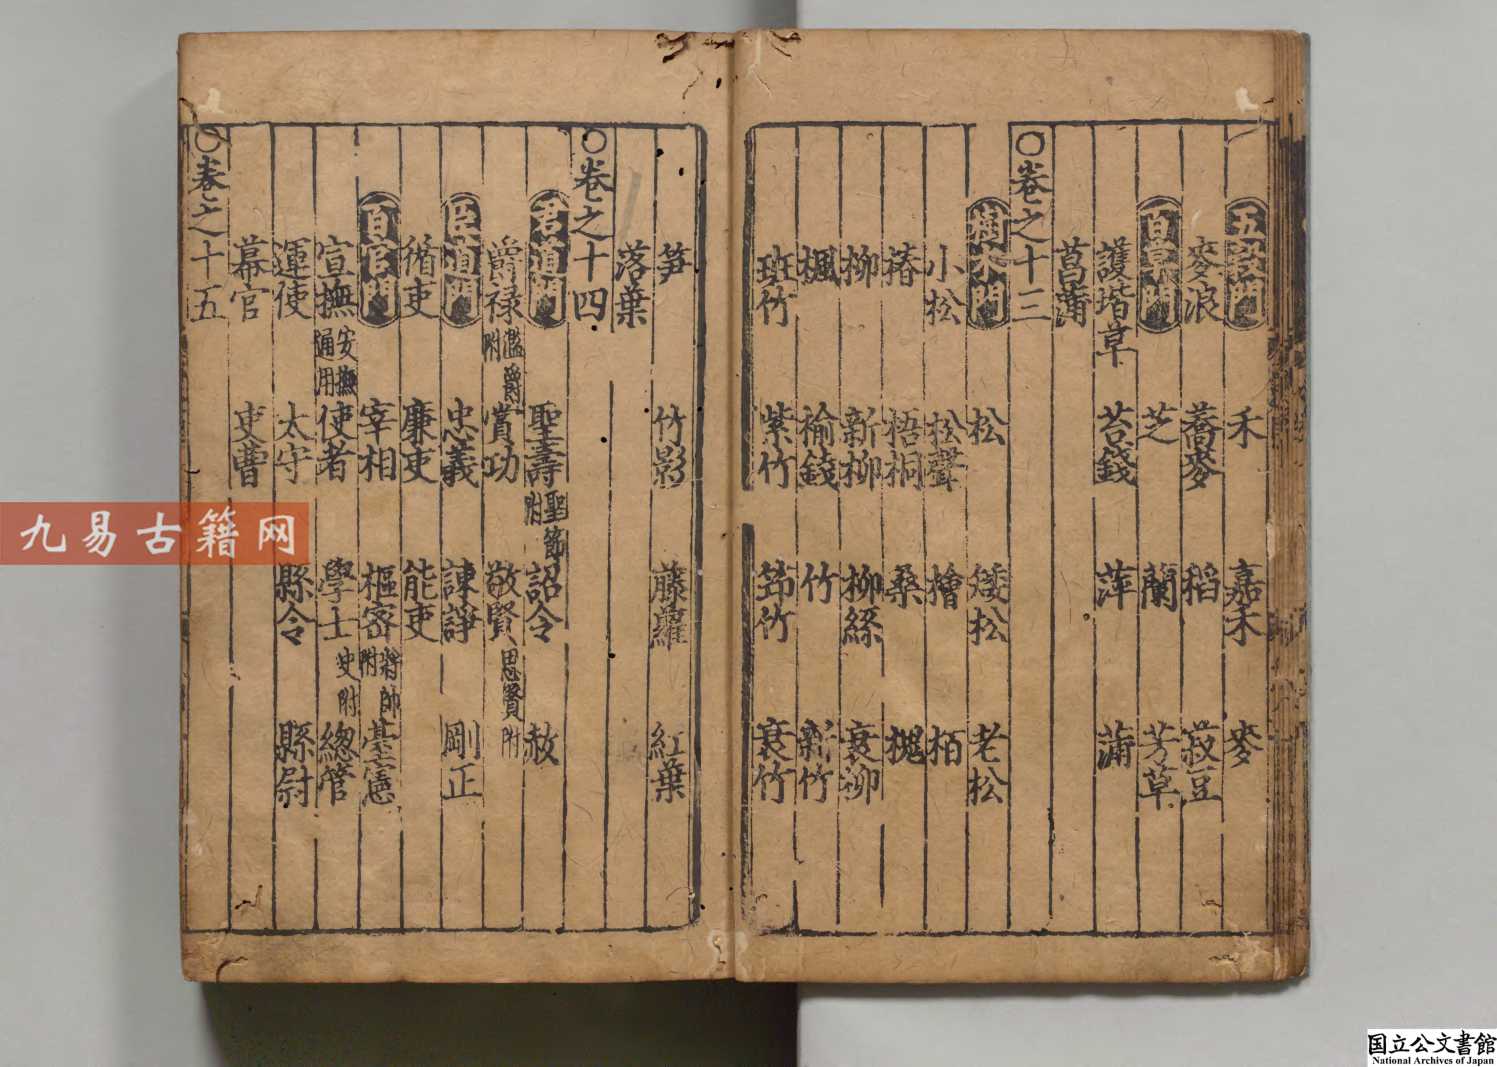 五穀門 禾 嘉禾 麥
麥浪 蕎麥 稻 菽豆
百草門 芝 蘭 芳草
護堦草 苔錢 萍 蒲
菖蒲
○卷之十三
樹木門 松 矮松 老松
小松 松聲 檜 栢
椿 梧桐 桑 槐
柳 新柳 柳絲 衰柳
楓 榆錢 竹 新竹
斑竹 紫竹 笻竹 衰竹
笋 竹影 藤蘿 紅葉
落葉
○卷之十四
君道門 聖壽 聖節附 詔令 赦
爵祿 濫爵附 賞功 敬賢 思賢附
臣道門 忠義 諫諍 剛正
循吏 廉吏 能吏
百官門 宰相 樞密 將帥附 臺憲
宣撫 安撫通用 使者 學士 史附 總管
運使 太守 縣令 縣尉
幕官 吏曹
○卷之十五
九易古籍网
国立公文書館
National Archives of Japan